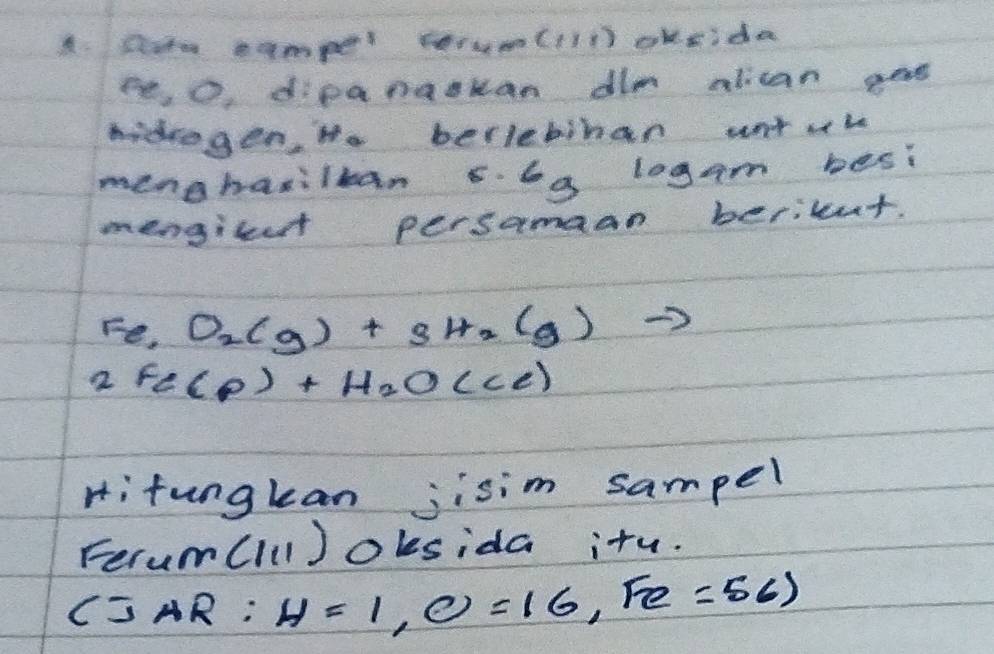 sampel Ferum(III) oksida
dipanaskan dlm alican gas
hidrogen, H2 berlebihan untuk
menghasilkan 5.6g logam besi
mengikut persamaan berikut.
Fe, O2(g) + 3H2(g) →
2Fe(p) + H2O(ce)
Hitungkan jisim sampel
Ferum(III) Oksida itu.
(JAR : H = 1, O = 16, Fe = 56)